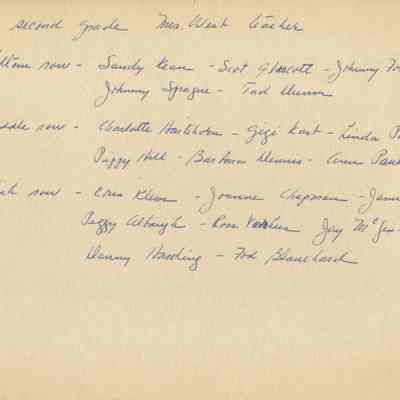 second grade Mrs. West teacher
ttom row - Sandy Kean - Scot Glascott - Johnny Fo
Johnny Sprague - Tad Dunn
ddle row - Charlotte - Gigi Kast - Linda P
Peggy Hill - Barbara Dennis - Ann Pau
row - Klein - Joanne Chapman -
Peggy Albaugh - Ross Jay McGu
Danny Harding - Tod Blanchard